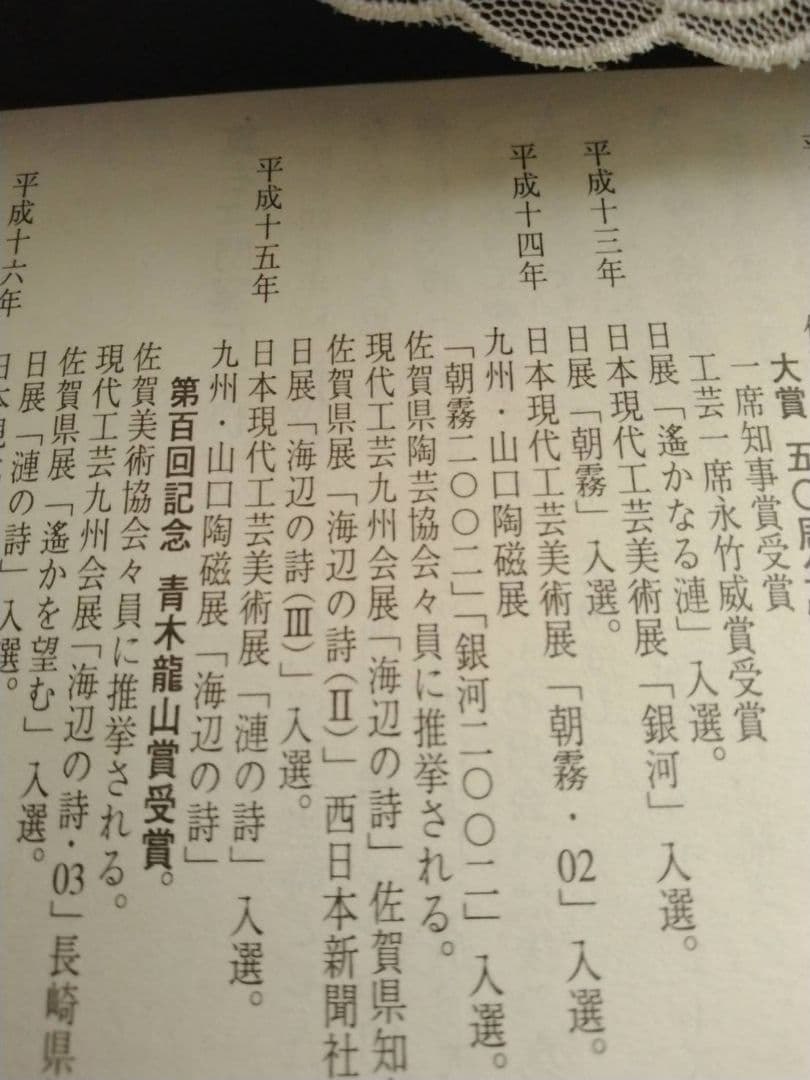 大賞 五〇周
一席知事賞受賞
工芸一席永竹威賞受賞
日展「遙かなる漣」入選。
平成十三年 日本現代工芸美術展「銀河」入選。
日展「朝霧」入選。
平成十四年 日本現代工芸美術展「朝霧・02」入選。
九州・山口陶磁展
「朝霧二〇〇二」「銀河二〇〇二」入選。
佐賀県陶芸協会々員に推挙される。
現代工芸九州会展「海辺の詩」佐賀県知
佐賀県展「海辺の詩(Ⅱ)」西日本新聞社
日展「海辺の詩(Ⅲ)」入選。
平成十五年 日本現代工芸美術展「漣の詩」入選。
九州・山口陶磁展「海辺の詩」
第百回記念 青木龍山賞受賞。
佐賀美術協会々員に推挙される。
現代工芸九州会展「海辺の詩・03」長崎県
佐賀県展「遙かを望む」入選。
日展「漣の詩」入選。
平成十六年 日本現